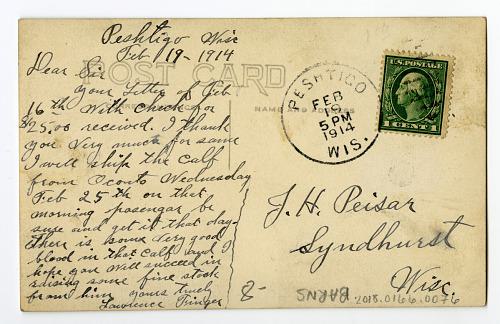 Peshtigo Wisc
Feb 19-1914
Dear Sir
your letter of Feb
16th with check for
$25.00 received. I thank
you Very much for same
I will ship the calf
from Oconto Wednesday
Feb 25th on that
morning pasenger be
sure and get it that day
there is some Very good
blood in that calf and I
hope you will succeed in
raising some fine stock
from him yours truly
Lawrence
POST CARD
NAME AND ADDRESS
PESHTIGO
FEB
19
5 PM
1914
WIS.
U.S. POSTAGE
1 CENT 1
J. H. Peisar
Lyndhurst
Wisc.
8-
BARNS
2018.0166.0076